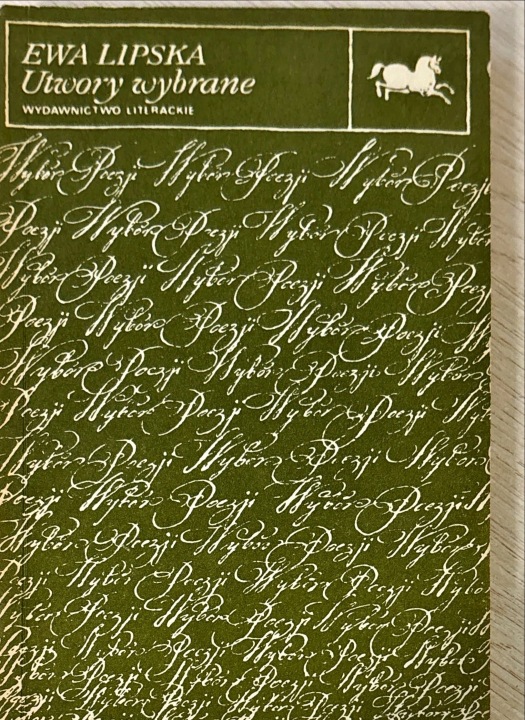 EWA LIPSKA
Utwory wybrane
WYDAWNICTWO LITERACKIE
Wybór Poezji Wybór Poezji Wybór Poezji
Poezji Wybór Poezji Wybór Poezji Wybór
Wybór Poezji Wybór Poezji Wybór Poezji
Poezji Wybór Poezji Wybór Poezji Wybór
Wybór Poezji Wybór Poezji Wybór
Poezji Wybór Poezji Wybór Poezji
Wybór Poezji Wybór Poezji Wybór
Poezji Wybór Poezji Wybór Poezji
Wybór Poezji Wybór Poezji Wybór
Poezji Wybór Poezji Wybór Poezji Wybór
Poezji Wybór Poezji Wybór Poezji
Poezji Wybór Poezji Wybór Poezji Wybór
Wybór Poezji Wybór Poezji Wybór Poezji